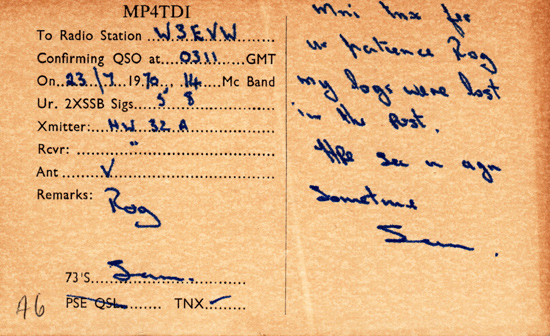 MP4TDI
To Radio Station W3EVW
Confirming QSO at 0311 GMT
On 23/7 1970 14 Mc Band
Ur. 2XSSB Sigs 5 8
Xmitter: HW 32 A
Rcvr: "
Ant V
Remarks: Rog
73'S Sam.
PSE QSL TNX ✓
A6
Mni tnx fer
ur patience Rog
my logs were lost
in the post.
Hpe see u agn
Sometime
Sam.